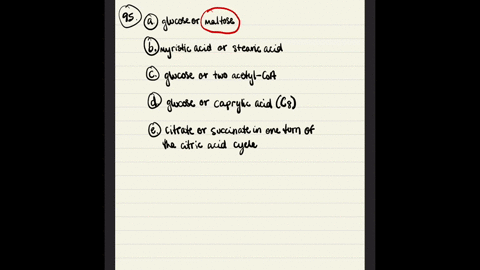 95. a glucose or maltose
b. myristic acid or stearic acid
c. glucose or two acetyl-CoA
d glucose or caprylic acid (C8)
e citrate or succinate in one turn of
the citric acid cycle